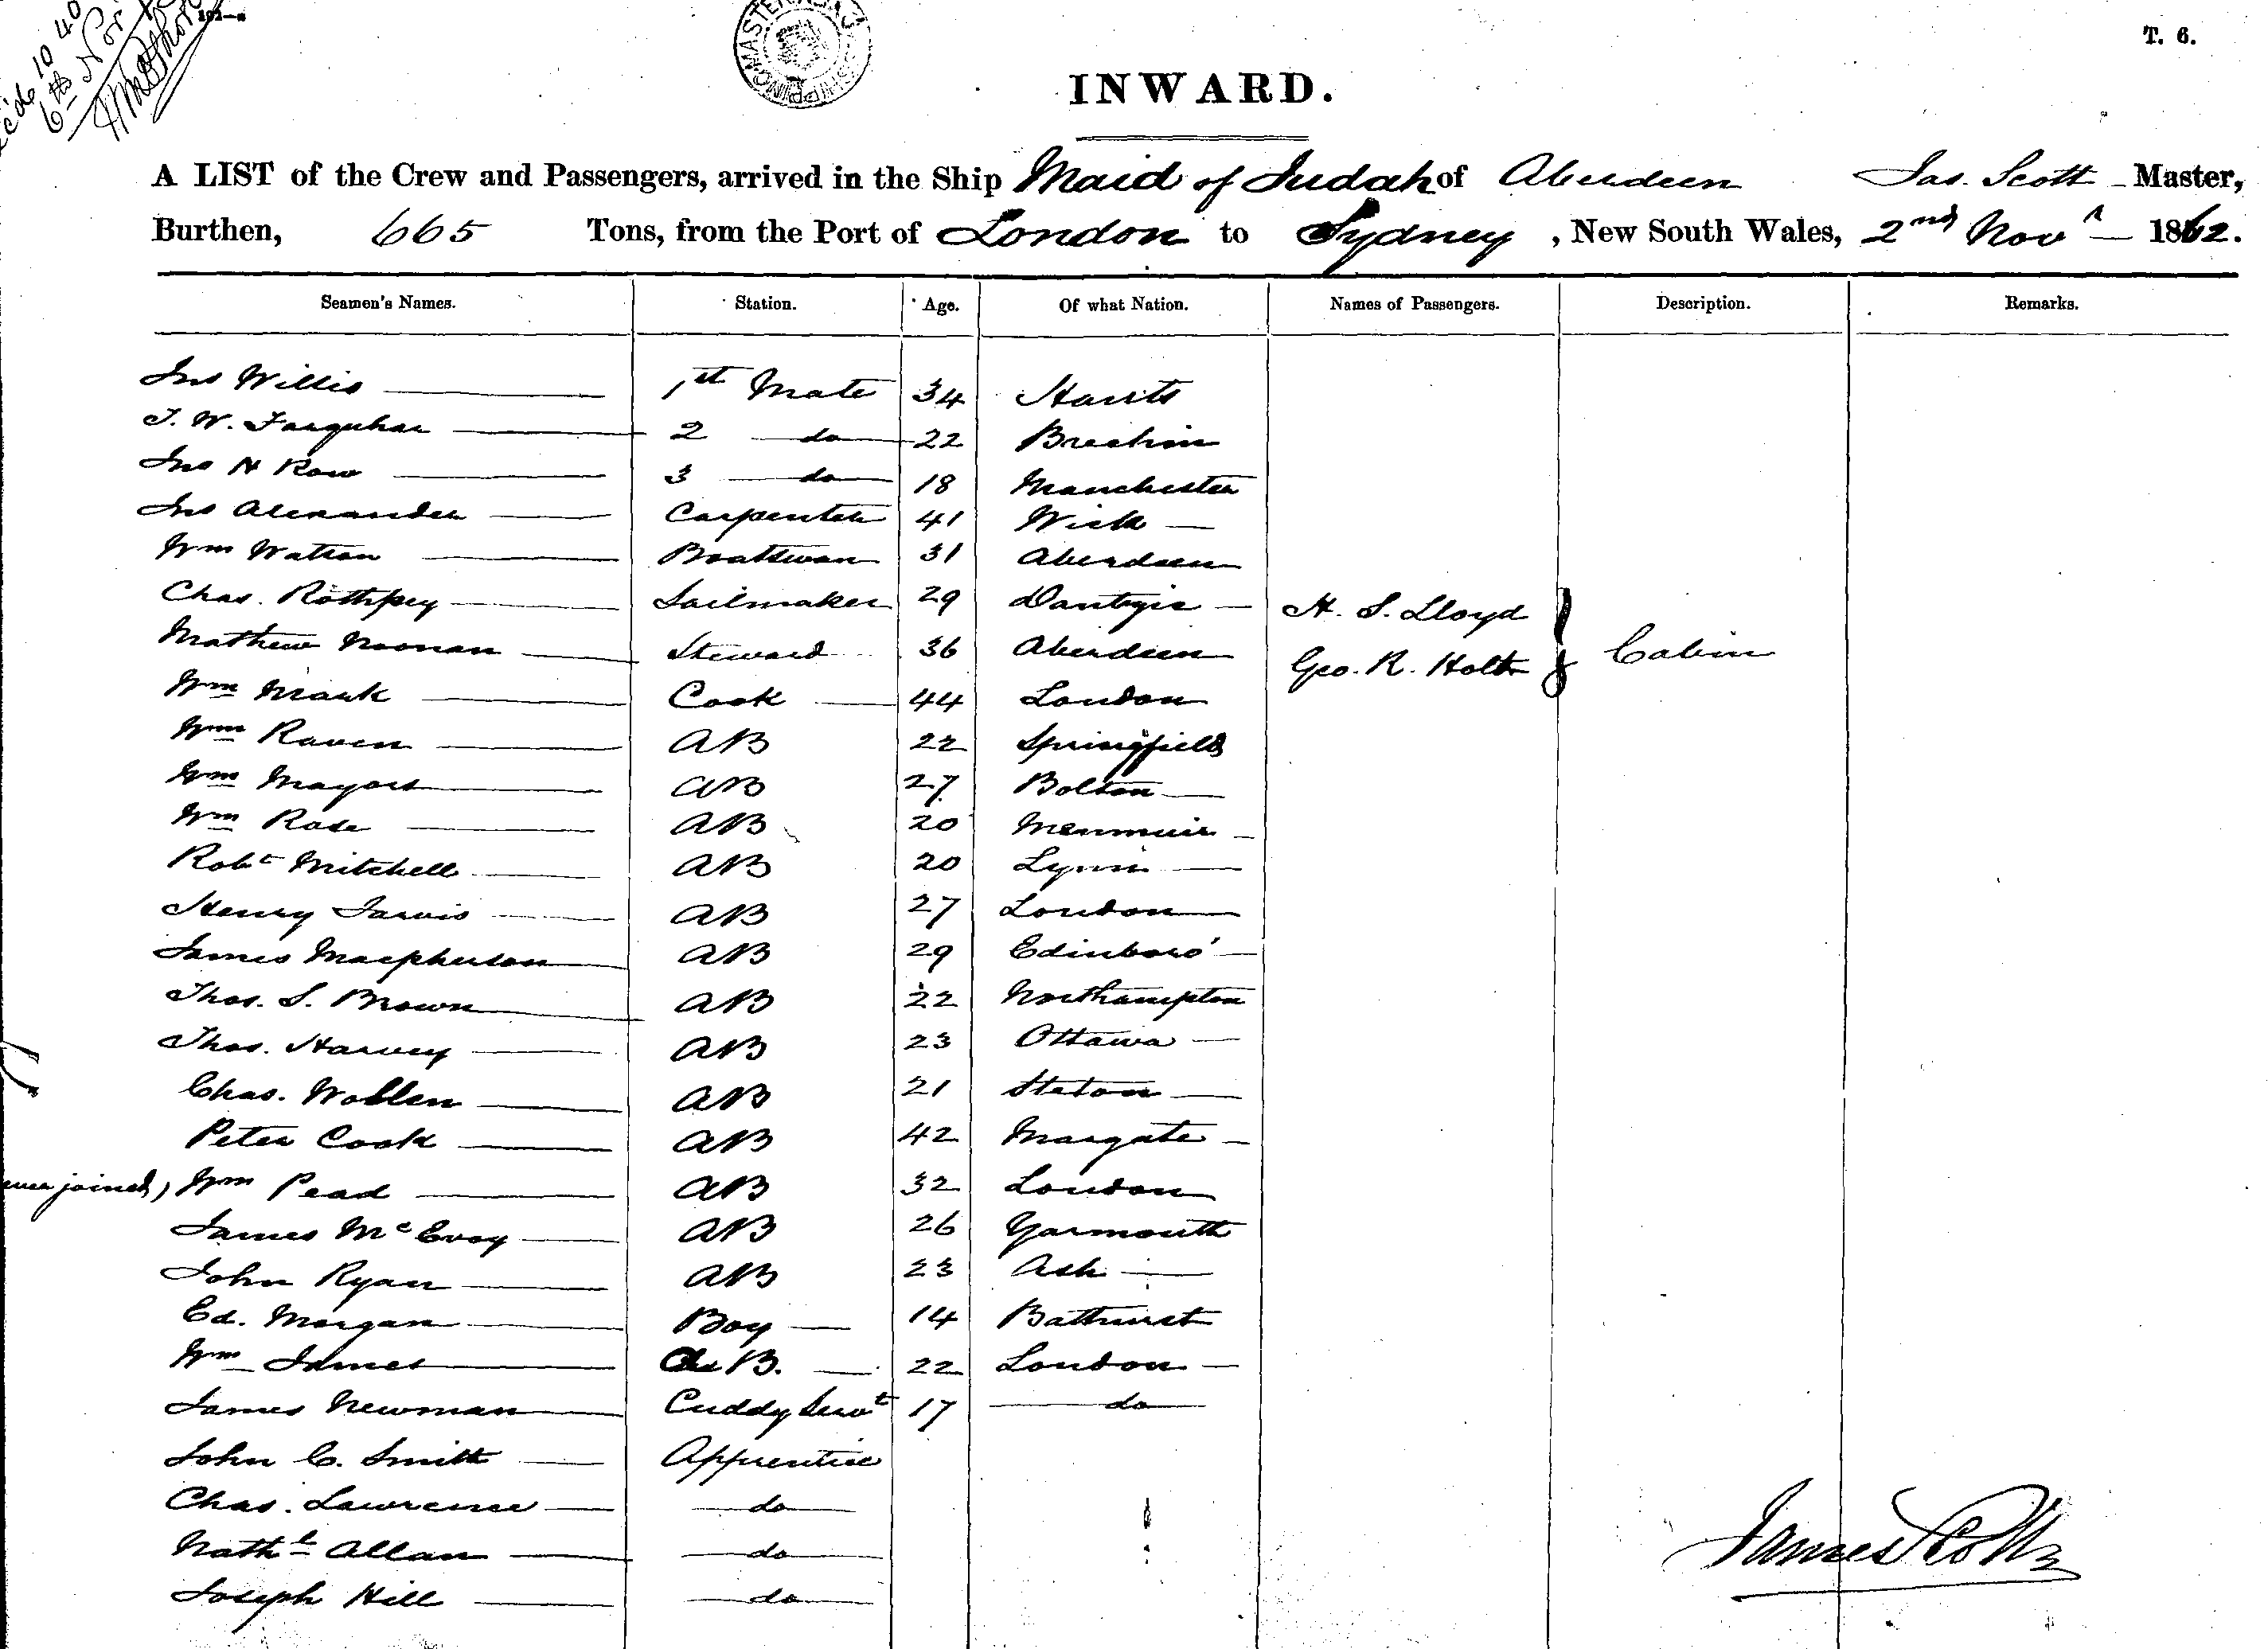 T. 6.
INWARD.
A LIST of the Crew and Passengers, arrived in the Ship Maid of Judah of Aberdeen Jas. Scott Master,
Burthen, 665 Tons, from the Port of London to Sydney, New South Wales, 2nd Novr 1862.
Seamen's Names. Station. Age. Of what Nation. Names of Passengers. Description. Remarks.
Jno Willis 1st Mate 34 Hants
J. W. Farquhar 2 do 22 Brechin
Jno H Row 3 do 18 Manchester
Jno Alexander Carpenter 41 Wick
Wm Watson Boatswan 31 Aberdeen
Chas. Sailmaker 29 Dantzic H. S. Lloyd
Mathew Noonan Steward 36 Aberdeen Geo. R. Holt Cabin
Wm Mark Cook 44 London
Wm Raven AB 22 Springfield
Wm AB 27 Bolton
Wm Rose AB 20 Menmuir
Robt Mitchell AB 20 Lynn
Henry Jarvis AB 27 London
James Macpherson AB 29 Edinboro'
Thos. S. Brown AB 22 Northampton
Thos. Harvey AB 23 Ottawa
Chas. Wollen AB 21
Peter Cook AB 42 Margate
joined) Wm Pead AB 32 London
James McEvoy AB 26 Yarmouth
John Ryan AB 23 Ash
Ed. Morgan Boy 14 Bathurst
Wm James AB. 22 London
James Newman Cuddy Servt 17 do
John C. Smith Apprentice
Chas. Lawrence do
Nathl Allan do
Joseph Hill do
James Scott